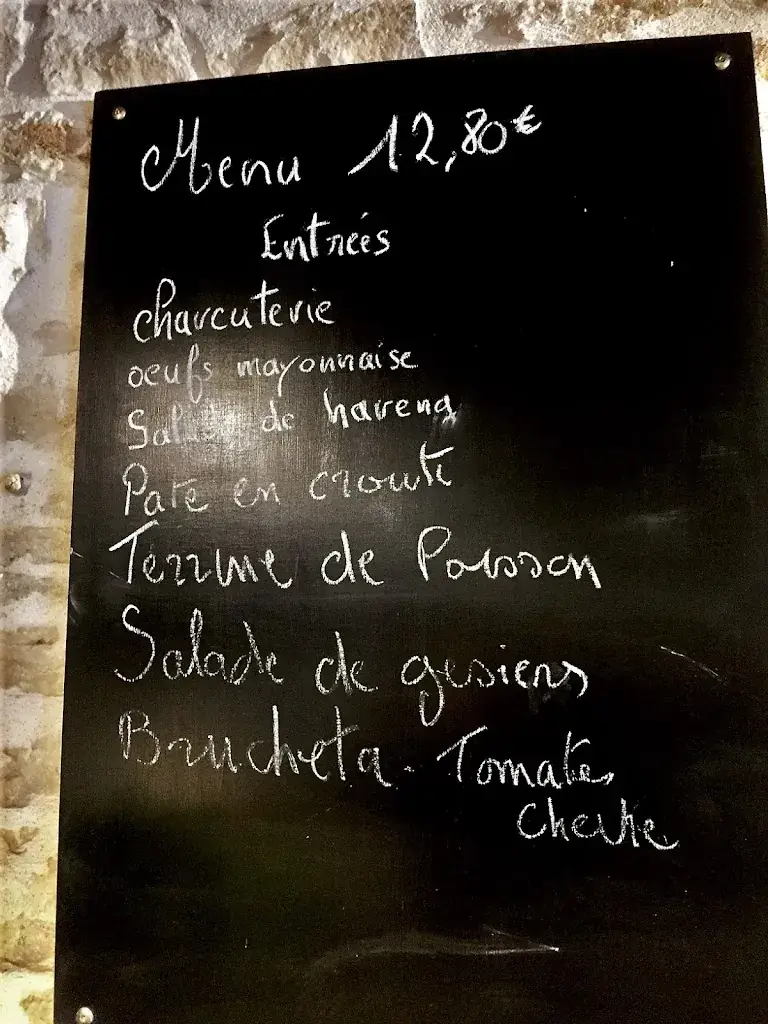 Menu 12,80€
Entrées
charcuterie
oeufs mayonnaise
Salade de hareng
Pate en croute
Terrine de Poisson
Salade de gesiers
Brucheta - Tomate